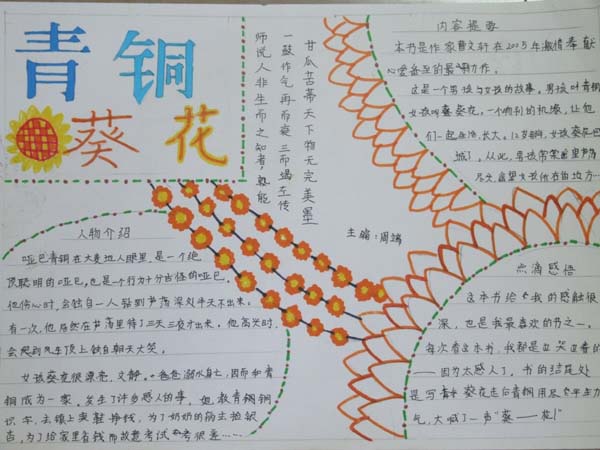 青铜
葵花
甘瓜苦蒂天下物无完美墨
一鼓作气再而衰三而竭左传
师说人非生而之知者，孰能
主编：周端
内容提要
本书是作家曹文轩在2005年激情奉献
心爱备至的最新力作。
这是一个男孩与女孩的故事。男孩叫青铜
女孩叫葵花。一个特别的机缘，让他
们一起生活，长大。12岁那年，女孩葵花回
城了，从此，男孩常常遥望芦荡
尽头，盼望女孩他在的地方…
人物介绍
哑巴青铜在大麦地人眼里，是一个绝
顶聪明的哑巴，也是个行为十分古怪的哑巴。
他伤心时，会独自一人钻到芦荡深处半天不出来；
有一次，他居然在芦荡里待了三天三夜才出来。他高兴时，
会爬到风车顶上独自朝天大笑。
女孩葵花很漂亮，文静。爸爸溺水身亡，因而和青
铜成为一家，发生了许多感人的事，她，教青铜铜
识字，去镇上卖鞋挣钱，为了奶奶的病去捡银
杏，为了给家里省钱而故意考试考很差……
点滴感悟
这本书给我的感触很
深，也是我最喜欢的书之一。
每次看这本书，我都是哭着看的
——因为太感人了，书的结尾处
是写葵花走后青铜用尽平生力
气，大喊了一声“葵——花！”